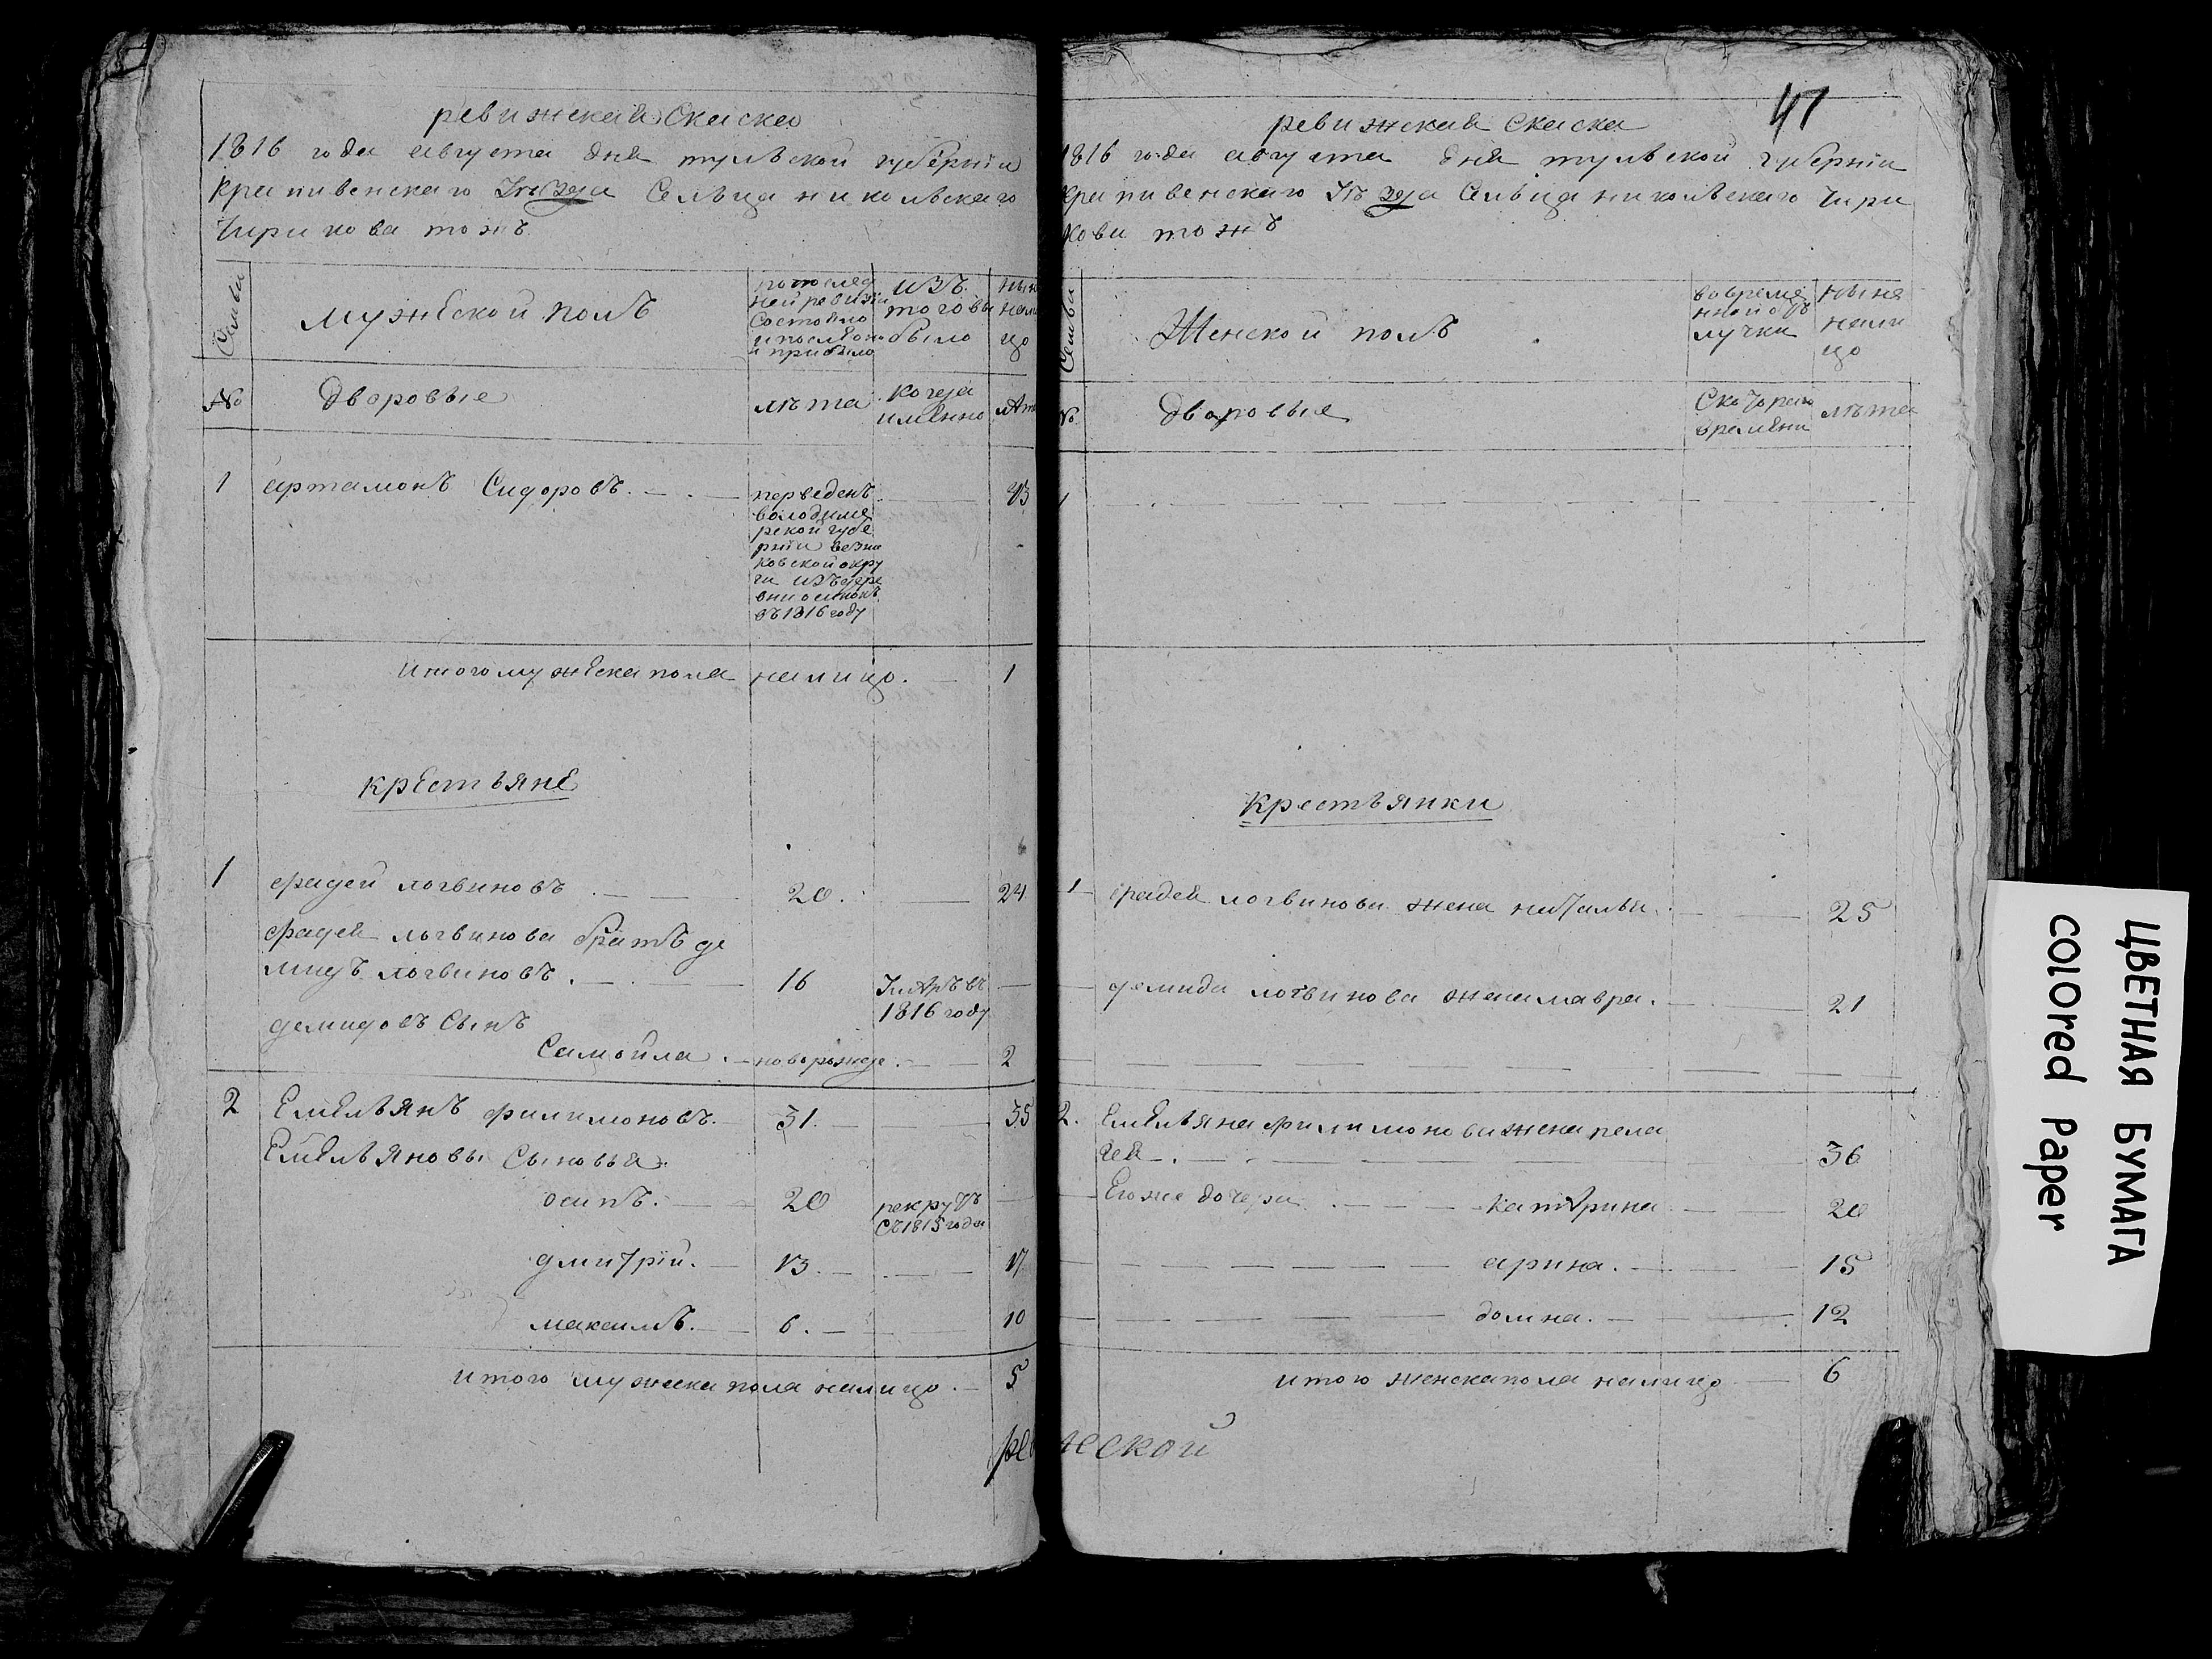 ревижская Скаска
1816 года августа дня тульской губернiи
крапивенскаго Уѣзда Сельца никольскаго
Чирикова тожъ
Семьи
мужеской полъ
по послед
ней ревизiи
Состояло
и после оно
и прибыло
изъ
того вы
было
ныне
нали
цо
№
дворовые
лѣта
когда
именно
1 артамонъ Сидоровъ.
переведенъ
володиме
рской губе
рнiи везни
ковской окру
ги изъ дере
вни осинокъ
въ 1816 году
43
итого мужеска пола налицо. 1
крестьяне
1 фадей логвиновъ 20. 24
фадея логвинова братъ де
мидъ логвиновъ. 16
Умѣръ въ
1816 году
демидовъ Сынъ
Самойла. новорожде. 2
2 Емельянъ филимоновъ. 31. 35
Емельяновы Сыновья.
осипъ. 20
рекрутъ
съ 1815 года
дмитрiй. 13. 17
максимъ. 6. 10
итого мужеска пола налицо. 5
рев
47
ревижская Скаска
1816 года августа дня тульской губернiи
крапивенскаго Уѣзда Сельца никольскаго Чири
кова тожъ
Семьи
Женской полъ
во време
нной отъ
лучки
ныне
нали
цо
№
дворовые
Скотораго
времени
лѣта
1
крестьянки
1 фадея логвинова жена наталья. 25
демида логвинова жена мавра. 21
2. Емельяна филимонова жена пела
гея. 36
Егоже дочери катерина 20
арина. 15
домна. 12
итого женска пола налицо 6
жской
ЦВЕТНАЯ БУМАГА
COLORED PAPER